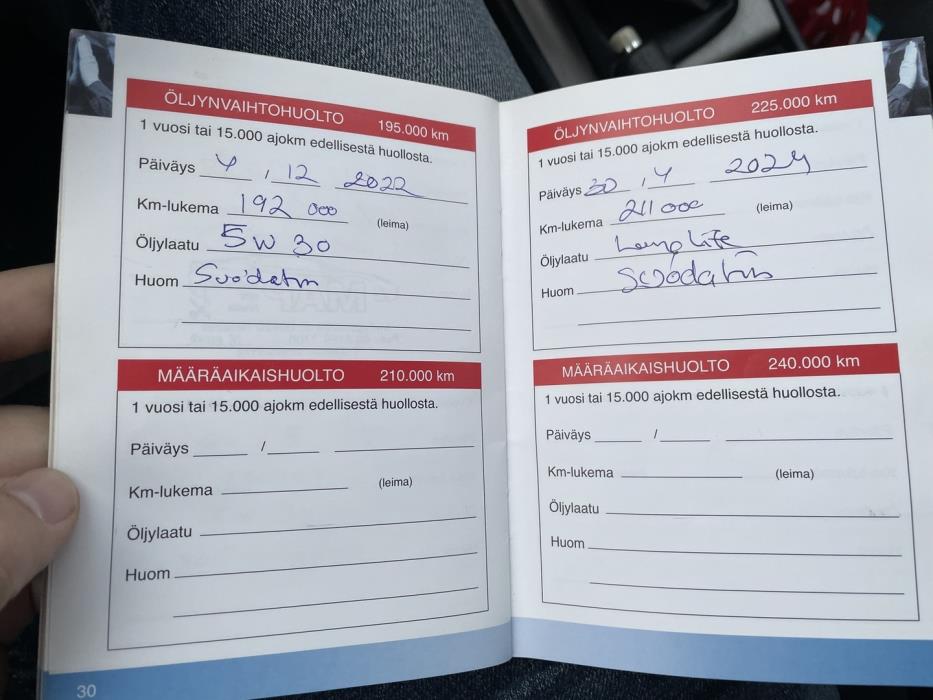 ÖLJYNVAIHTOHUOLTO 195.000 km
1 vuosi tai 15.000 ajokm edellisestä huollosta.
Päiväys 4 / 12 2022
Km-lukema 192 000 (leima)
Öljylaatu 5W 30
Huom Suodatin
MÄÄRÄAIKAISHUOLTO 210.000 km
1 vuosi tai 15.000 ajokm edellisestä huollosta.
Päiväys / 
Km-lukema (leima)
Öljylaatu
Huom
30
ÖLJYNVAIHTOHUOLTO 225.000 km
1 vuosi tai 15.000 ajokm edellisestä huollosta.
Päiväys 30 / 4 2024
Km-lukema 211 000 (leima)
Öljylaatu Long Life
Huom Suodatin
MÄÄRÄAIKAISHUOLTO 240.000 km
1 vuosi tai 15.000 ajokm edellisestä huollosta.
Päiväys /
Km-lukema (leima)
Öljylaatu
Huom